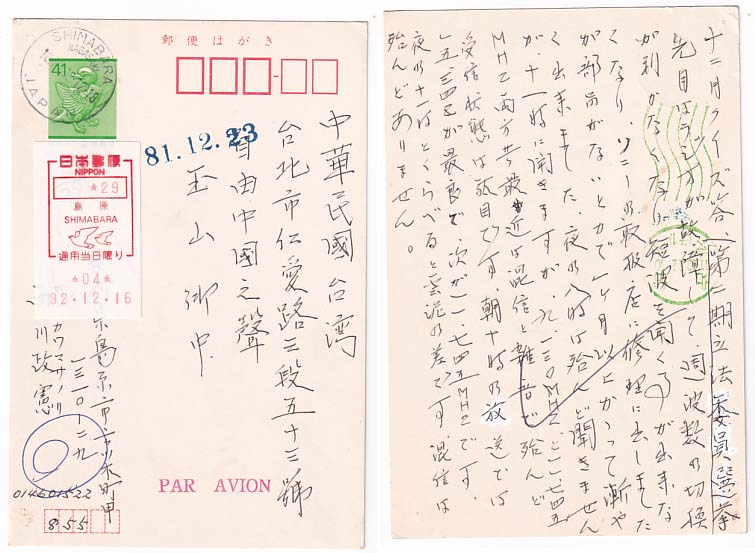 郵便はがき
SHIMABARA
JAPAN
41
日本郵便
NIPPON
*29
島原
SHIMABARA
通用当日限り
*04*
92.12.16
81.12.23
中華民國台湾
台北市仁愛路三段五十三號
自由中國之聲
玉山御中
カワマサノリ
川政憲
PAR AVION
014601522
855
十二月クイズ答、第二期立法委員選挙
先日はラジオが故障して、周波数の切換
が利かなくなり、短波を聞くことが出来な
くなり、ソニーの取扱店に修理に出しました
が部品がないとかで一ヶ月以上かかって漸や
く出来ました。夜の八時は殆んど聞きません
が、十一時に聞きますが、九.六一〇MHZと一一.七四五
MHZ両方共最近は混信と雑音で殆んど
受信状態は駄目です。朝十時の放送では
一五.三四五が最良で、次が一一.七四五MHZです。
夜の十一時とくらべると雲泥の差です。混信は
殆んどありません。